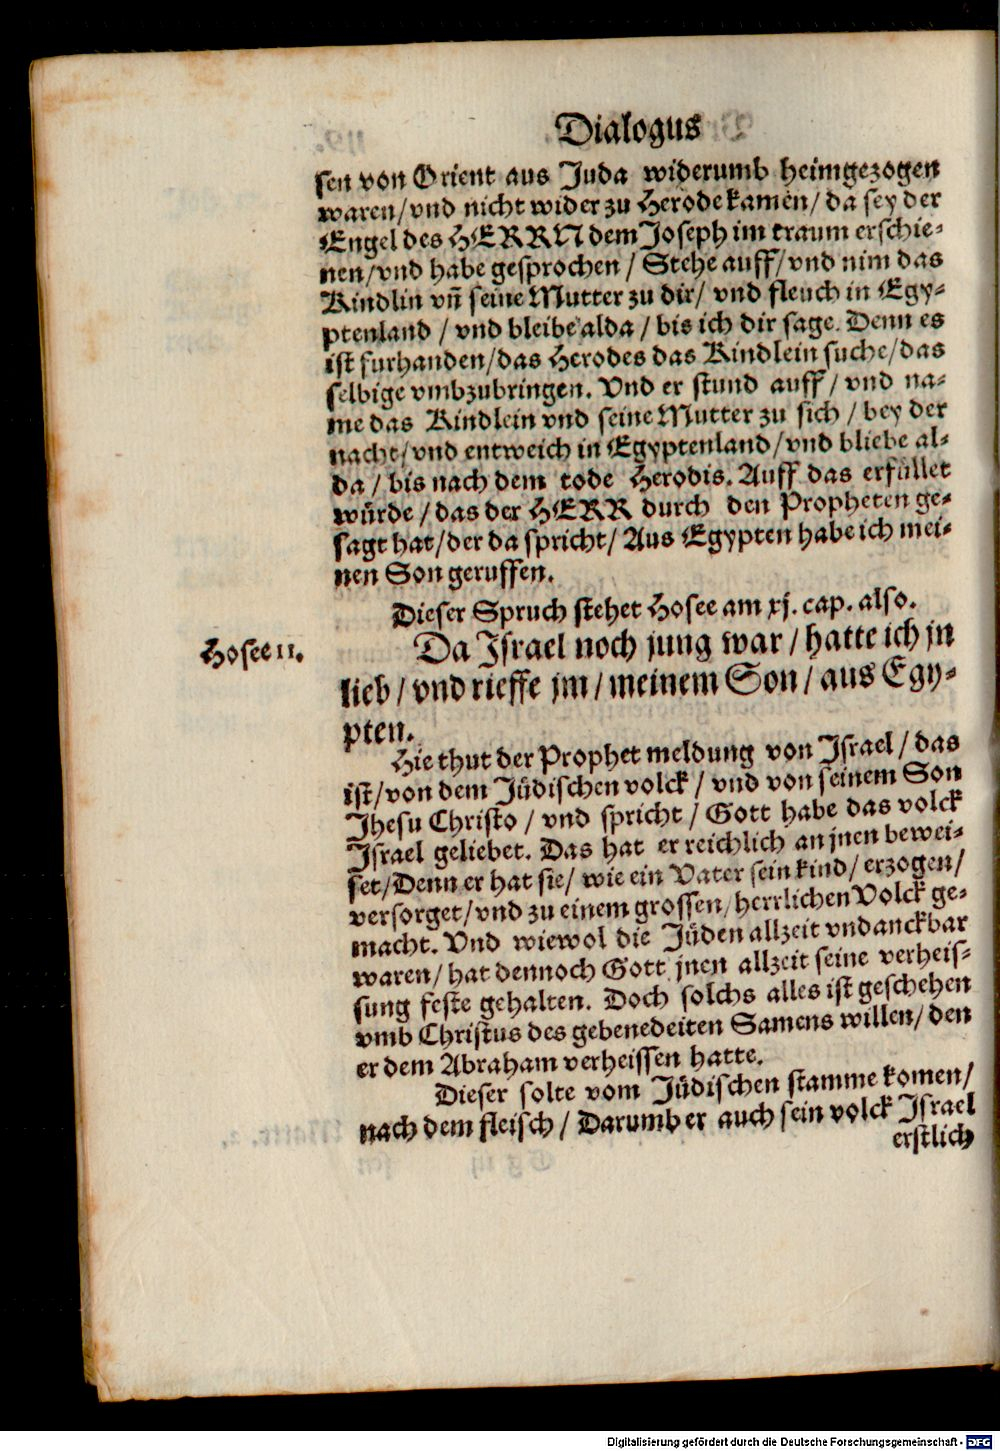 Dialogus
sen von Orient aus Juda widerumb heimgezogen
waren/vnd nicht wider zu Herode kamen/ da sey der
Engel des HERRN dem Joseph im traum erschie-
nen/vnd habe gesprochen / Stehe auff/vnd nim das
Kindlin vn̄ seine Mutter zu dir/ vnd fleuch in Egy-
ptenland / vnd bleibe alda / bis ich dir sage. Denn es
ist furhanden/das Herodes das Kindlein suche/das
selbige vmbzubringen. Vnd er stund auff / vnd na-
me das Kindlein vnd seine Mutter zu sich / bey der
nacht/vnd entweich in Egyptenland/vnd bliebe al-
da / bis nach dem tode Herodis. Auff das erfüllet
würde / das der HERR durch den Propheten ge-
sagt hat/der da spricht/ Aus Egypten habe ich mei-
nen Son geruffen.
Dieser Spruch stehet Hosee am xj. cap. also.
Hosee 11.
Da Israel noch jung war / hatte ich jn
lieb / vnd rieffe jm / meinem Son / aus Egy-
pten.
Hie thut der Prophet meldung von Israel / das
ist/von dem Jüdischen volck / vnd von seinem Son
Jhesu Christo / vnd spricht / Gott habe das volck
Israel geliebet. Das hat er reichlich an jnen bewei-
set/Denn er hat sie/ wie ein Vater sein kind/ erzogen/
versorget/vnd zu einem grossen/herrlichen Volck ge-
macht. Vnd wiewol die Jüden allzeit vndanckbar
waren/ hat dennoch Gott jnen allzeit seine verheis-
sung feste gehalten. Doch solchs alles ist geschehen
vmb Christus des gebenedeiten Samens willen/ den
er dem Abraham verheissen hatte.
Dieser solte vom Jüdischen stamme komen/
nach dem fleisch / Darumb er auch sein volck Israel
erstlich
Digitalisierung gefördert durch die Deutsche Forschungsgemeinschaft - DFG